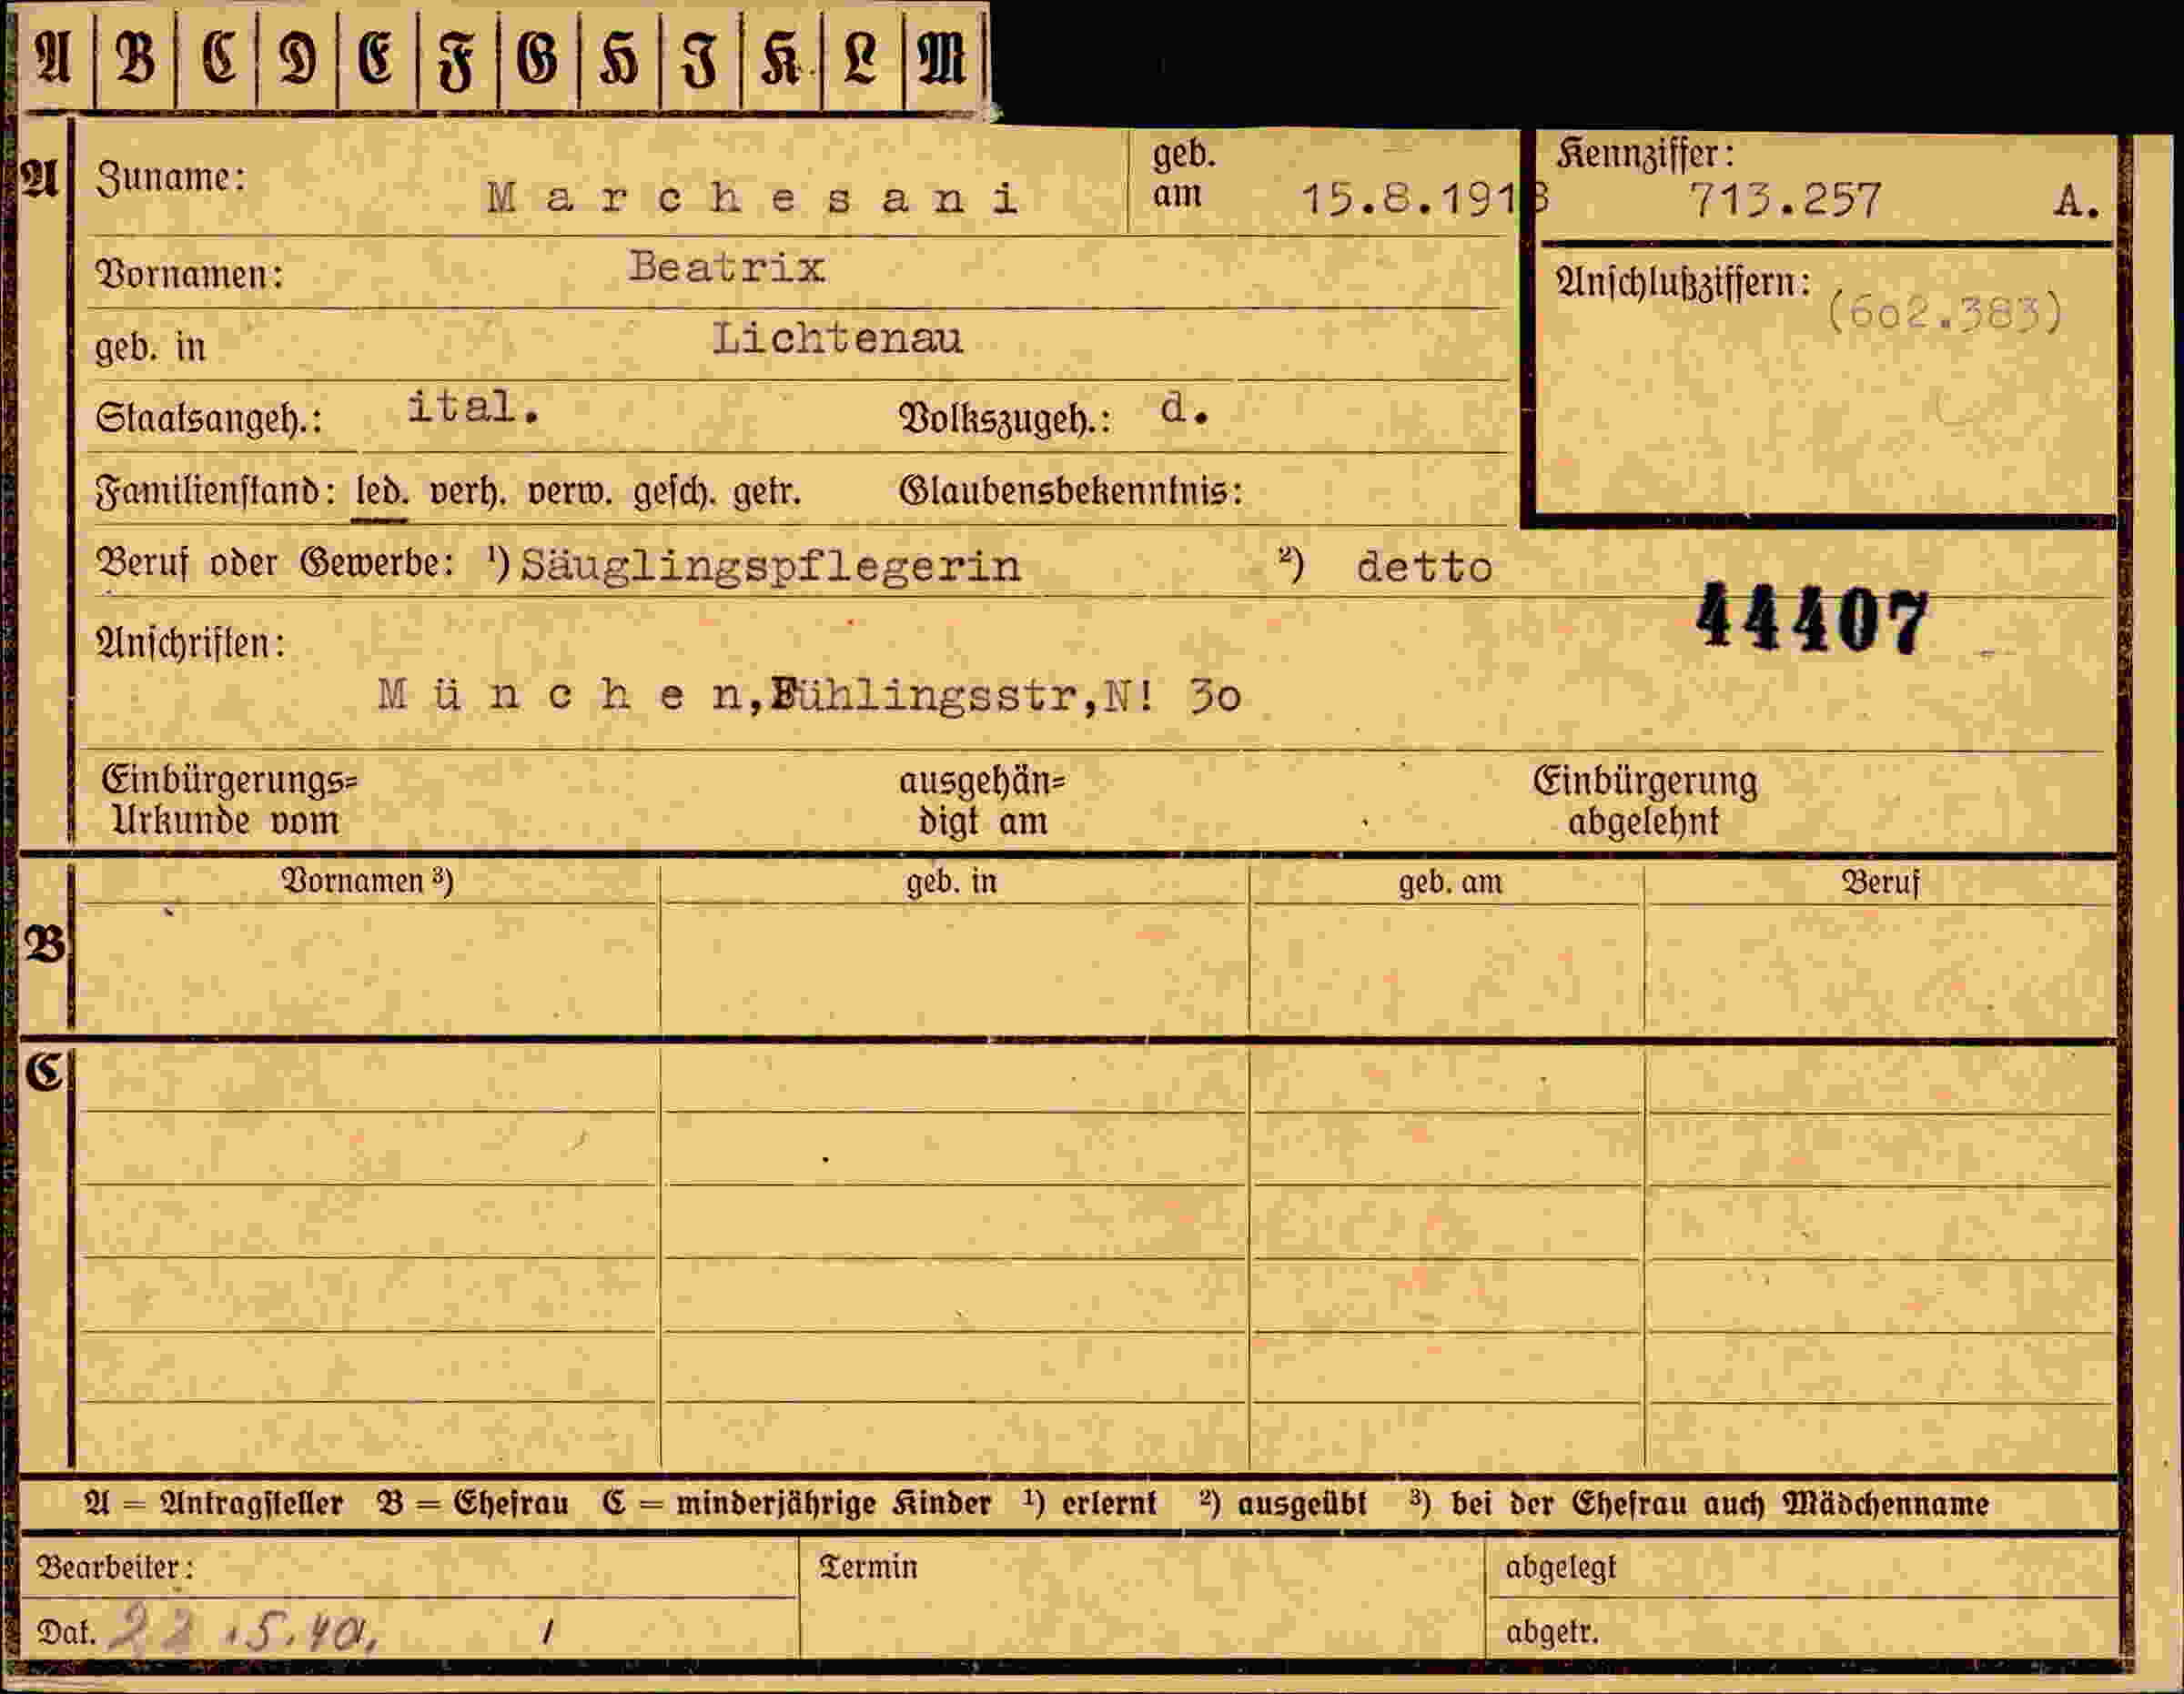 A B C D E F G H I K L M
A Zuname: Marchesani geb. am 15.8.1913 Kennziffer: 713.257 A.
Vornamen: Beatrix
Anschlußziffern: (602.383)
geb. in Lichtenau
Staatsangeh.: ital. Volkszugeh.: d.
Familienstand: led. verh. verw. gesch. getr. Glaubensbekenntnis:
Beruf oder Gewerbe: ¹) Säuglingspflegerin ²) detto
44407
Anschriften:
München,Fühlingsstr,N! 30
Einbürgerungs= ausgehän= Einbürgerung
Urkunde vom digt am abgelehnt
Vornamen ³) geb. in geb. am Beruf
B
C
A = Antragsteller B = Ehefrau C = minderjährige Kinder ¹) erlernt ²) ausgeübt ³) bei der Ehefrau auch Mädchenname
Bearbeiter: Termin abgelegt
Dat. 22.5.40. abgetr.